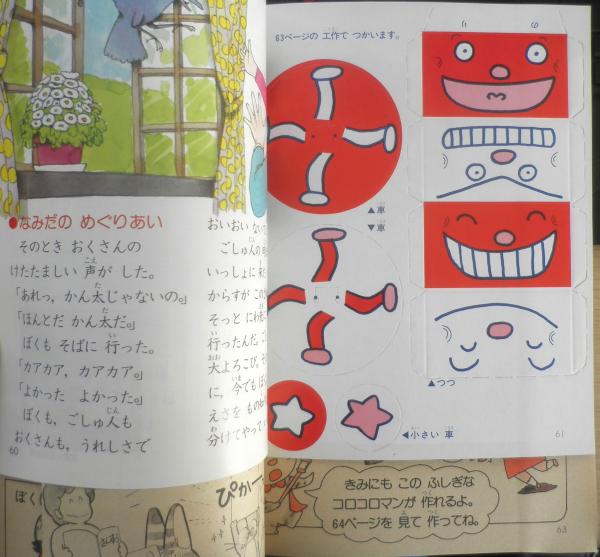 ●なみだの めぐりあい
そのとき おくさんの
けたたましい 声が した。
「あれっ,かん太じゃないの。」
「ほんとだ かん太だ。」
ぼくも そばに 行った。
「カアカア,カアカア。」
「よかった よかった。」
ぼくも,ごしゅ人も
おくさんも,うれしさで
60
おいおい ない
ごしゅ人の
いっしょに
からすが この
そっと にわ
行ったんだ。
大よろこび。
に,今でも ぼ
えさを ものね
分けてやって
63ページの 工作で つかいます。
▲車
▼車
▲つつ
◀小さい 車
61
ぼく
ぴかー
きみにも この ふしぎな
コロコロマンが 作れるよ。
64ページを 見て 作ってね。
63